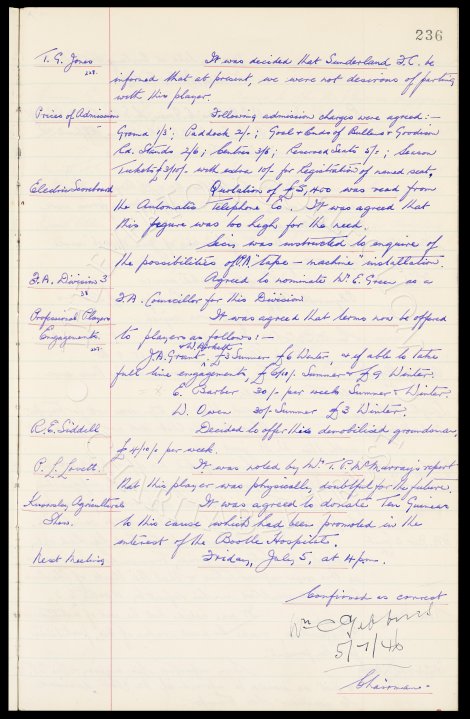 236
T. G. Jones It was decided that Sunderland F.C. be
228.
informed that at present, we were not desirous of parting
with this player.
Prices of Admission Following admission charges were agreed:-
Ground 1/3; Paddock 2/-; Goal & Ends of Bullens & Goodison
Rd. Stands 2/6; Centres 3/6; Reserved Seats 5/-; Season
Tickets £3/10/- with extra 10/- for Registration of named seats.
Electric Scoreboard Quotation of £3,400 was read from
the Automatic Telephone Co. It was agreed that
this figure was too high for the need.
Secy. was instructed to enquire of
the possibilities of "tape-machine" installation
F.A. Division 3 Agreed to nominate Mr. E. Green as a
38
F.A. Councillor for this Division
Professional Players It was agreed that terms now be offered
Engagements. to players as follows:-
227.
J.A. Grant, £5 Summer £6 Winter, & if able to take
full time engagements, Summer & £9 Winter.
E. Barber 30/- per week Summer & Winter.
W. Owen 30/- Summer £3 Winter.
R. E. Siddell Decided to offer this demobilised groundsman,
£4/10/- per week.
P. L. Lovett. It was noted by Mr. T. P. McMurray's report
that this player was physically doubtful for the future.
Agricultural It was agreed to donate Ten Guineas
Show. to this cause which had been promoted in the
interest of the Bootle Hospitals.
Next Meeting Friday, July 5, at 4 p.m.
Confirmed as correct
Wm C Gibbins
5/7/46
Chairman.